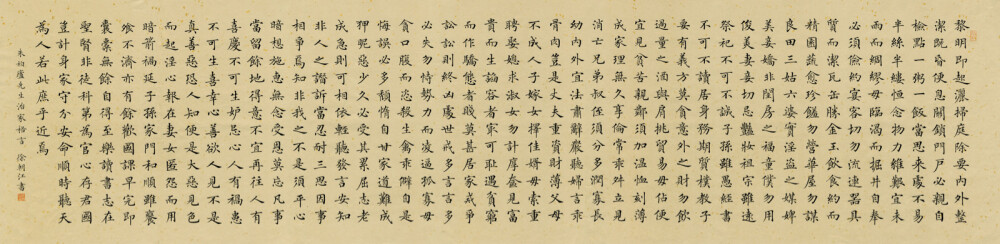 黎明即起灑掃庭除要內外整
潔既昏便息關鎖門戶必親自
檢點一粥一飯當思來處不易
半絲半縷恒念物力維艱宜未
雨而綢繆毋臨渴而掘井自奉
必須儉約宴客切勿流連器具
質而潔瓦缶勝金玉飲食約而
精園蔬愈珍饈勿營華屋勿謀
良田三姑六婆實淫盜之媒婢
美妾嬌非閨房之福童僕勿用
俊美妻妾切忌豔妝祖宗雖遠
祭祀不可不誠子孫雖愚經書
不可不讀居身務期質樸教子
要有義方莫貪意外之財勿飲
過量之酒與肩挑貿易毋佔便
宜見貧苦親鄰須加溫恤刻薄
成家理無久享倫常乖舛立見
消亡兄弟叔侄須分多潤寡長
幼內外宜法肅辭嚴聽婦言乖
骨肉豈是丈夫重資財薄父母
不成人子嫁女擇佳婿毋索重
聘娶媳求淑女勿計厚奩見富
貴而生諂容者最可恥遇貧窮
而作驕態者賤莫甚居家戒爭
訟訟則終凶處世戒多言言多
必失勿恃勢力而凌逼孤寡毋
貪口腹而恣殺生禽乖僻自是
悔誤必多頹惰自甘家道難成
狎昵惡少久必受其累屈志老
成急則可相依輕聽發言安知
非人之譖訴當忍耐三思因事
相爭焉知非我之不是須平心
暗想施惠無念受恩莫忘凡事
當留餘地得意不宜再往人有
喜慶不可生妒忌心人有禍患
不可生喜幸心善欲人見不是
真善惡恐人知便是大惡見色
而起淫心報在妻女匿怨而用
暗箭禍延子孫家門和順雖饔
飧不濟亦有餘歡國課早完即
囊橐無餘自得至樂讀書志在
聖賢非徒科第為官心存君國
豈計身家守分安命順時聽天
為人若此庶乎近焉
朱柏廬先生治家格言 徐利江書